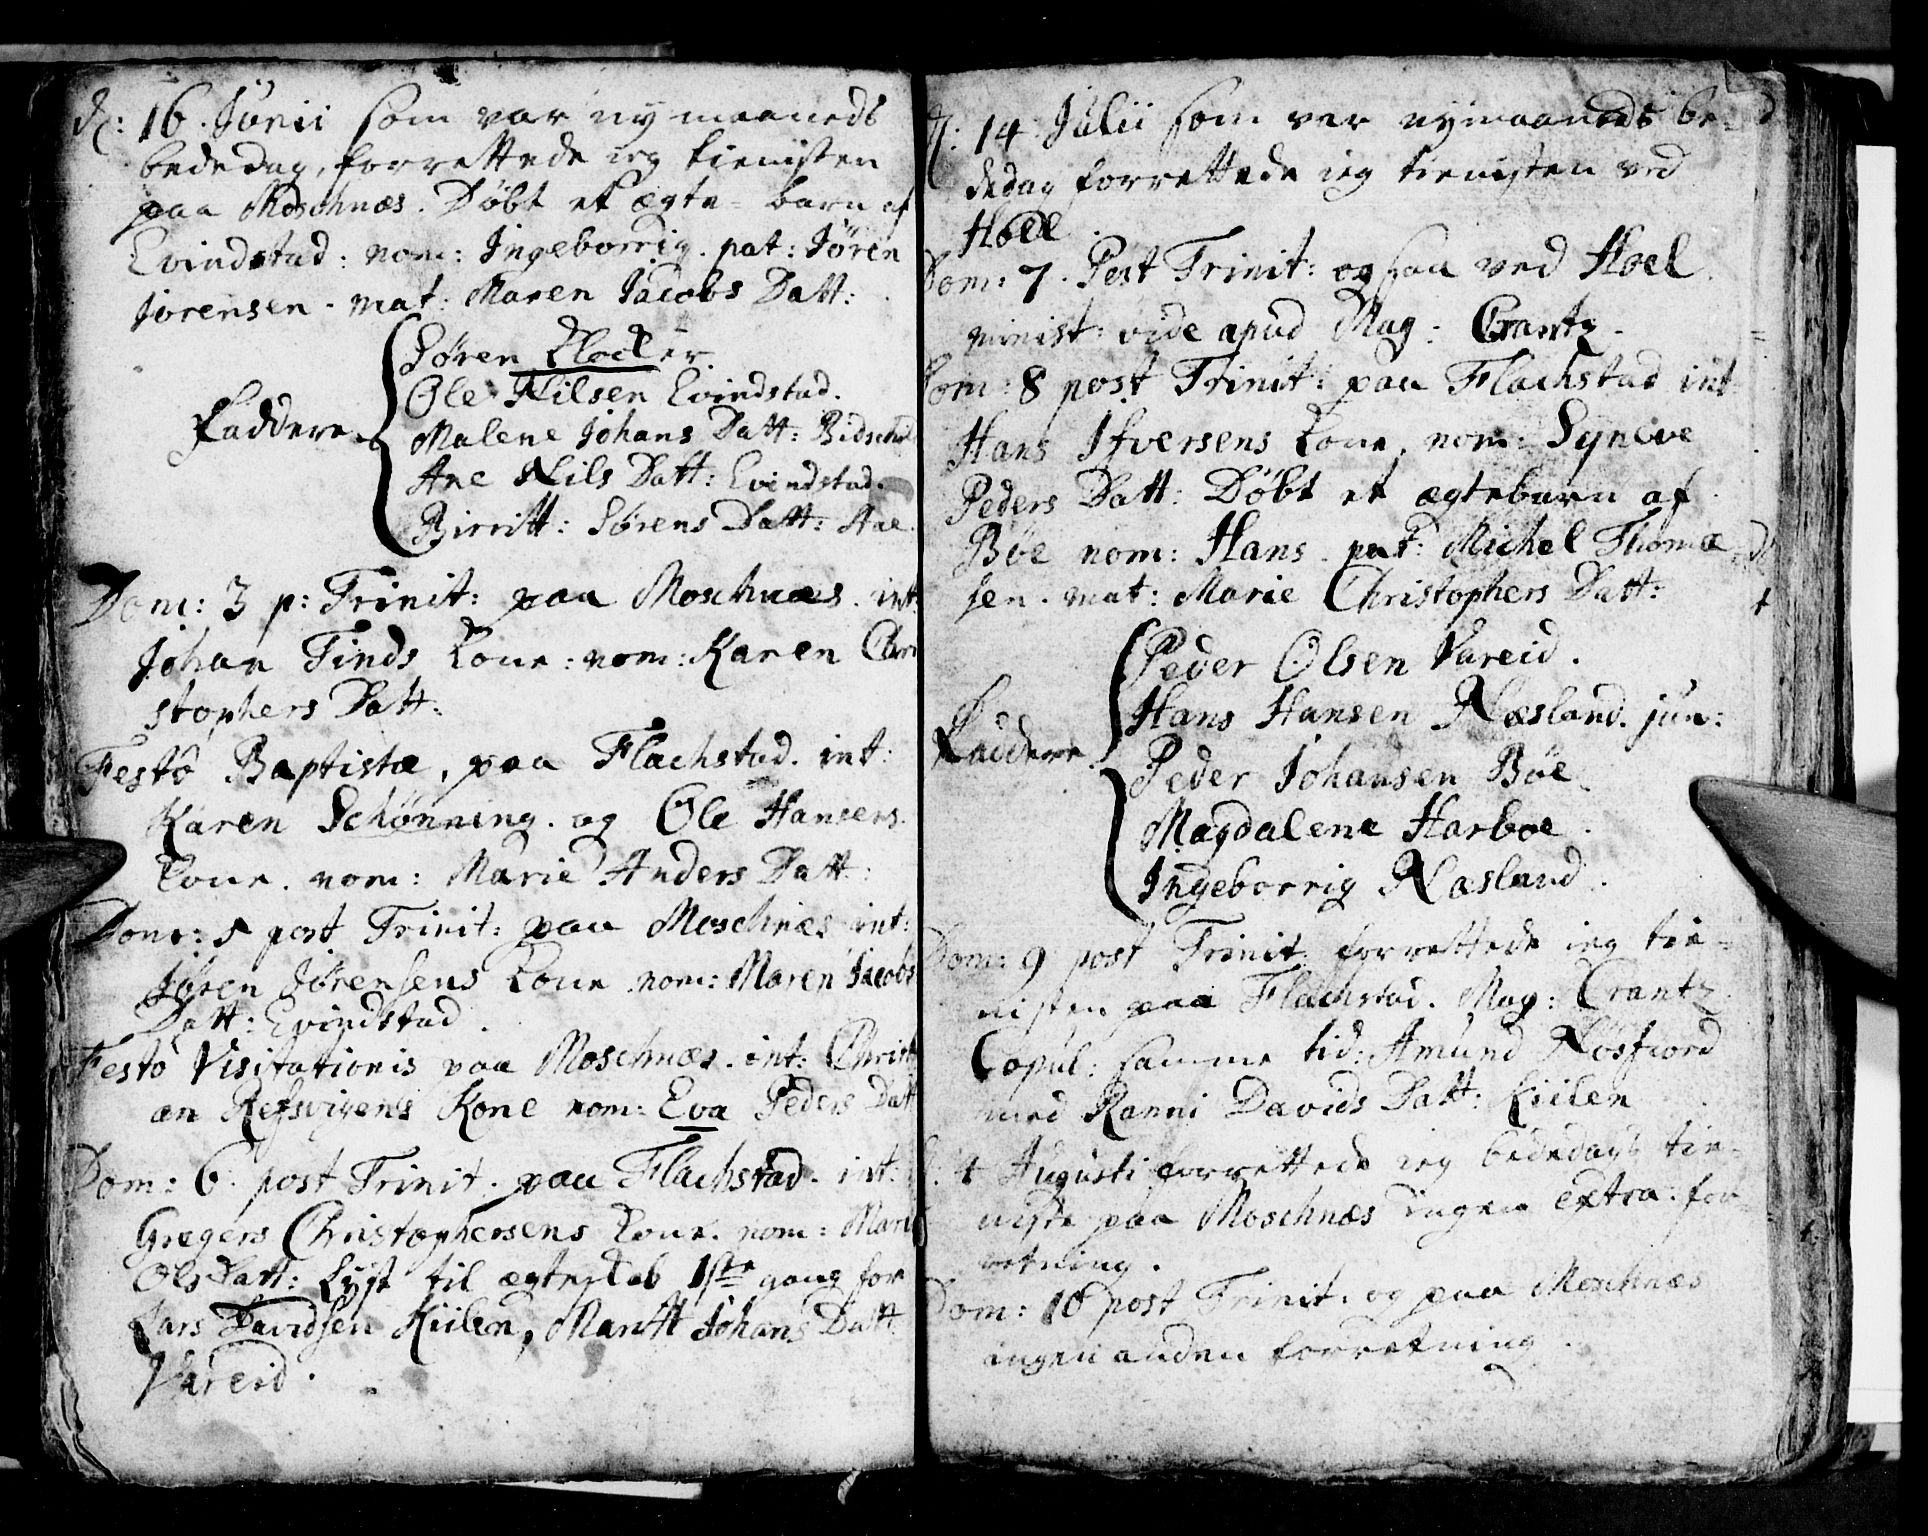 d: 16. Junii som var ny maaneds
bededag, forrettede ieg tienisten
paa Moschnæs. Døbt et ægte- barn af
Evindstad: nom: Ingeborrig. pat: Jøren
Jørensen. mat: Maren Jacobs Datt:
Søren
Ole Nilsen Evindstad.
Faddere Malene Johans Datt:
Ane Nils Datt: Evindstad.
Birritt: Sørens Datt:
Dom: 3 p: Trinit: paa Moschnæs. int:
Johan Finds Kone: nom: Karen Chri
stophers Datt:
Festo Baptistæ, paa Flachstad. int:
Karen Schønning. og Ole Hansens
Kone. nom: Marie Anders Datt:
Dom: 5 post Trinit: paa Moschnæs int:
Jøren Jørensens Kone nom: Maren Jacobs
Datt: Evindstad.
Festo Visitationis paa Moschnæs. int: Christi
an Refsvigens Kone nom: Eva Peders Datt
Dom: 6. post Trinit. paa Flachstad. int:
Gregers Christophersens Kone. nom: Mari
Ols Datt: Lyst til ægteskab 1ste gang for
Lars Davidsen Kiilen, Maritt Johans Datt
Vareid.
d: 14 Julii som var nymaaneds be-
dedag forrettede ieg tienisten ved
Hoel
Dom: 7. Post Trinit: ogsaa ved Hoel.
minist: vide apud Mag: Crantz.
Dom: 8 post Trinit: paa Flachstad int
Hans Ifversens Kone, nom: Syneve
Peders Datt: Døbt et ægtebarn af
Bøe nom: Hans. pat: Michel Thomæ
sen. mat: Marie Christophers Datt:
Peder Olsen Vareid.
Hans Hansen Næsland. jun:
Faddere Peder Johansen Bøe.
Magdalene Harboe.
Ingeborrig Næsland.
Dom: 9 post Trinit: forrettede ieg tie-
nisten paa Flachstad. Mag: Crantz
Copul: samme tid: Amund Nøsfiord
med Ranni Davids Datt: Kiilen
4 Augusti forrettede ieg bededags tie-
niste paa Moschnæs ingen extra: for
retning.
Dom: 10 post Trinit. og paa Moschnæs
ingen anden forretning.